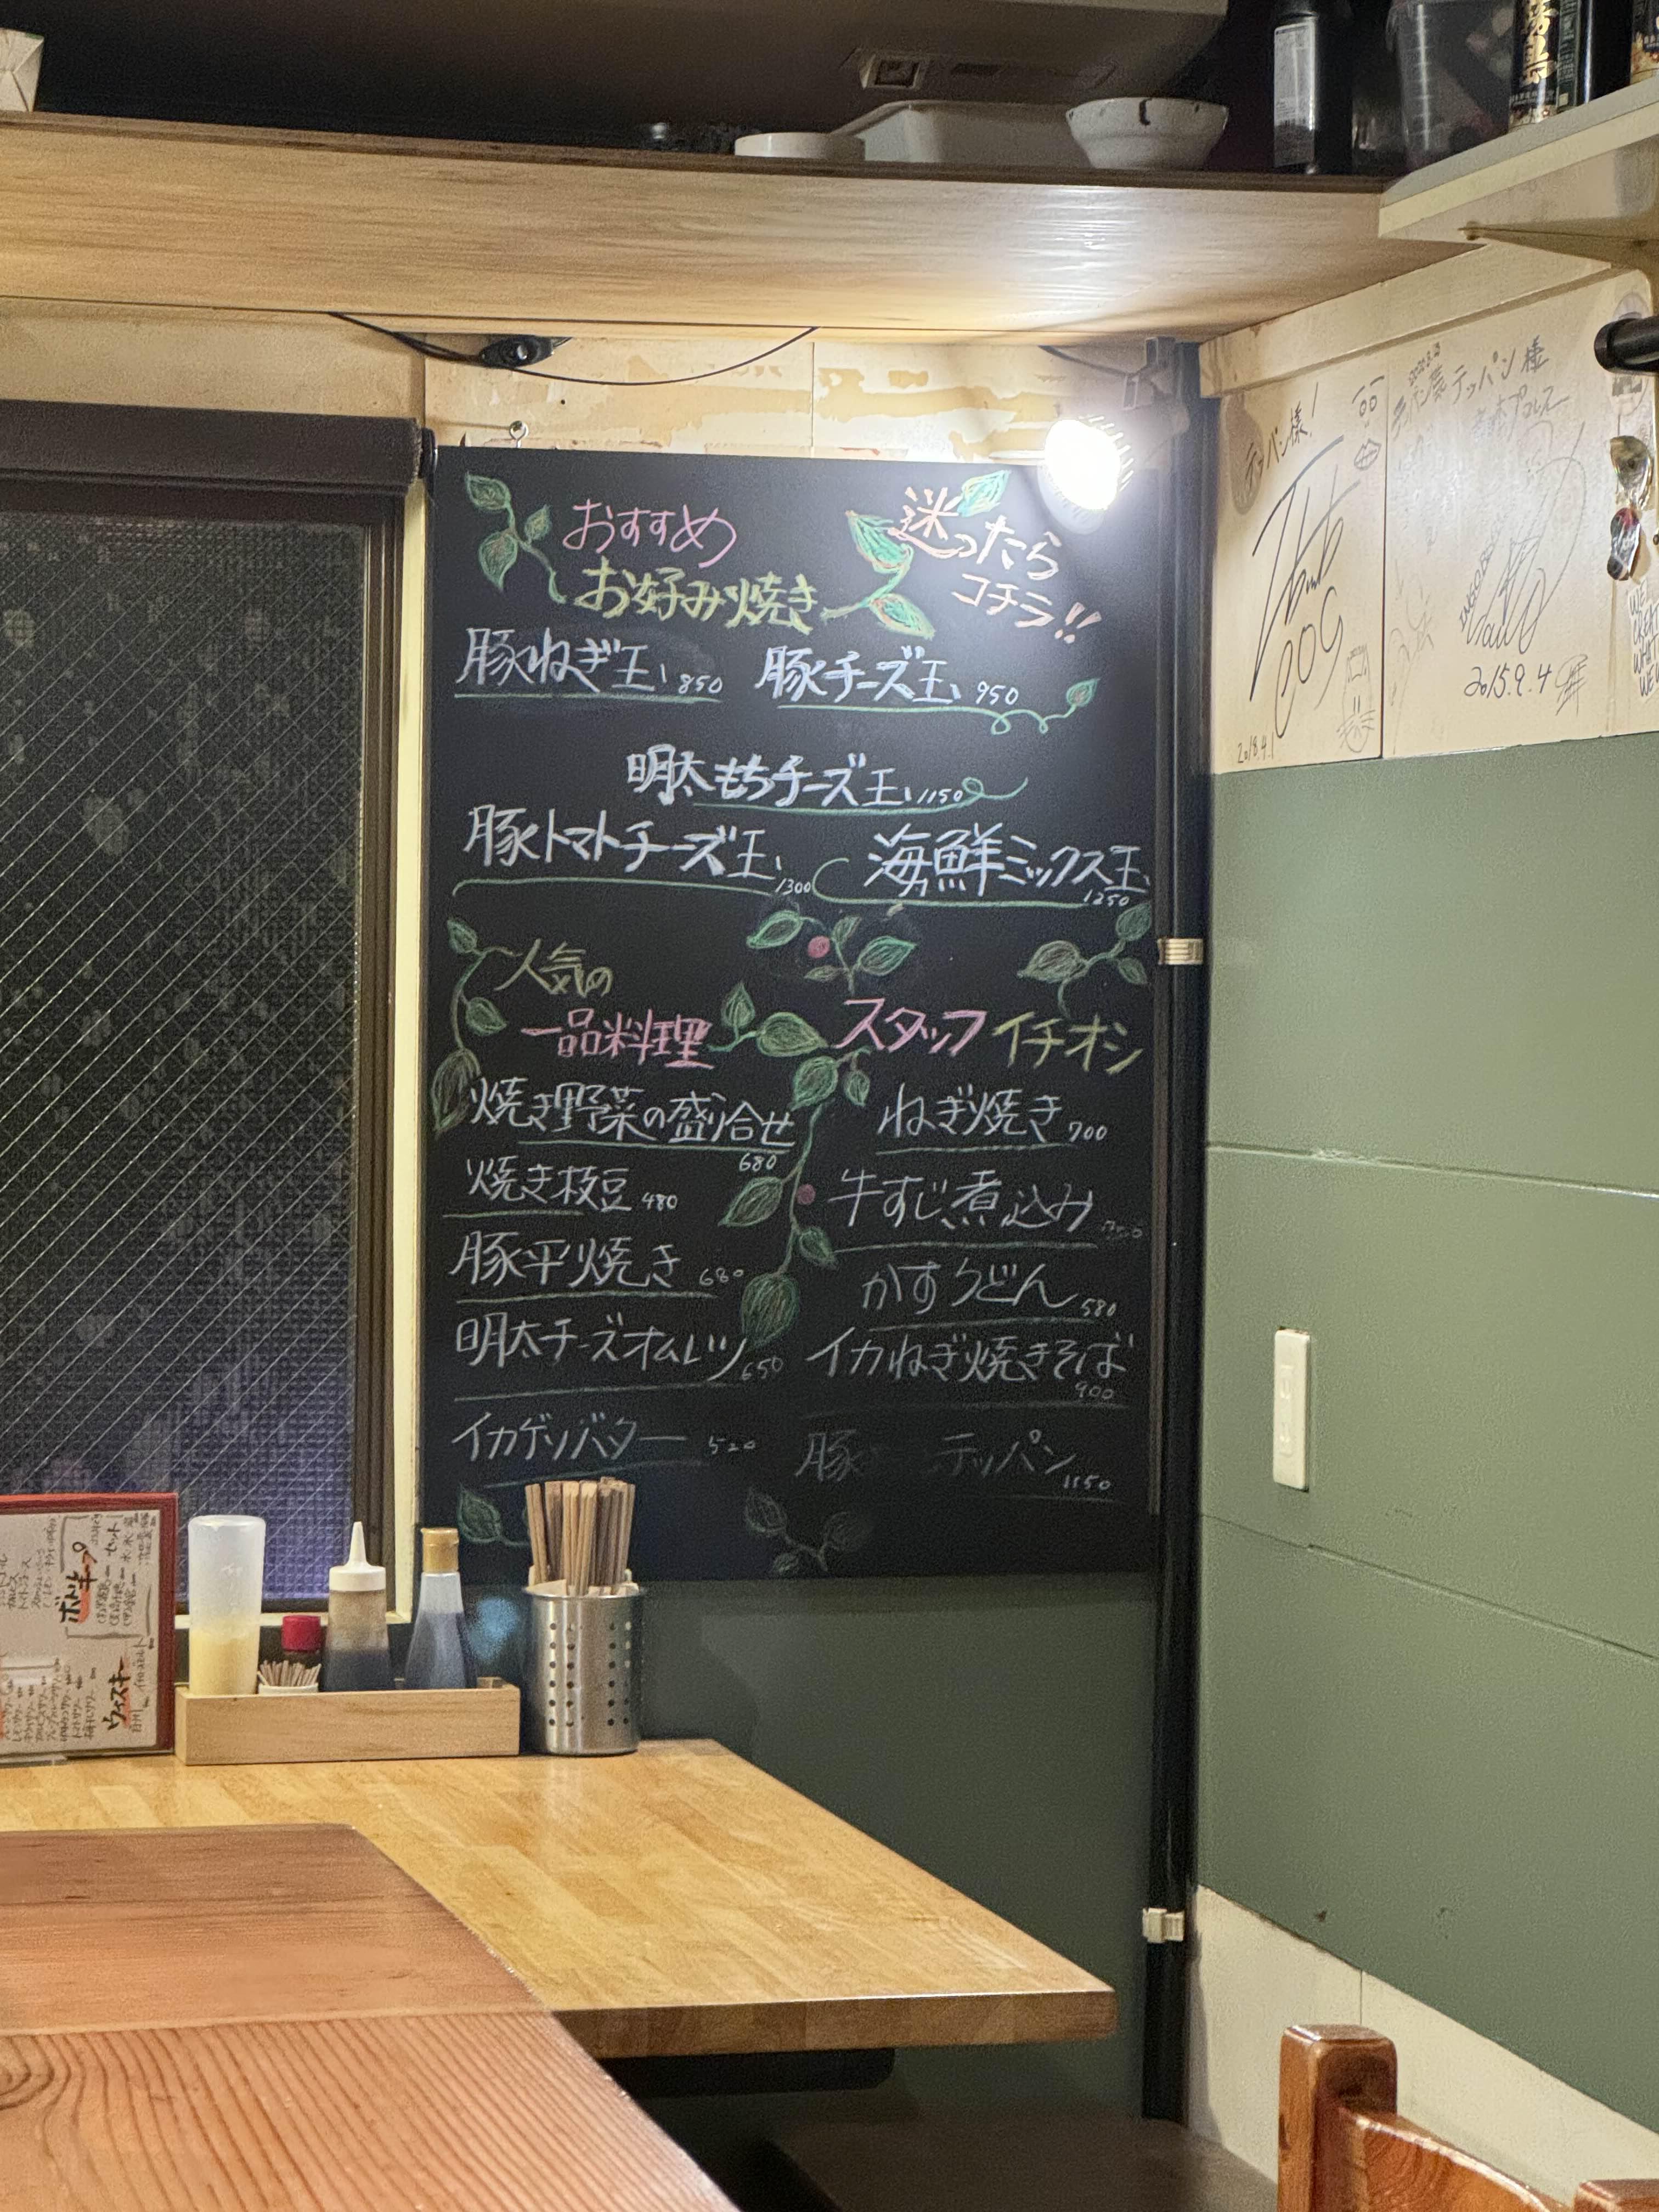 おすすめ
お好み焼き
迷ったら
コチラ!!
豚ねぎ玉 850
豚チーズ玉 950
明太もちチーズ玉 1150
豚トマトチーズ玉 1300
海鮮ミックス玉 1250
人気の
一品料理
焼き野菜の盛り合せ
680
焼き枝豆 480
豚平焼き 680
明太チーズオムレツ 650
イカゲソバター 520
スタッフイチオシ
ねぎ焼き 700
牛すじ煮込み
かすうどん 580
イカねぎ焼きそば
900
豚 テッパン 1150
テッパン様!
2018.4.1
テッパン様
2015.9.4
ボトルキープ
ウィスキー